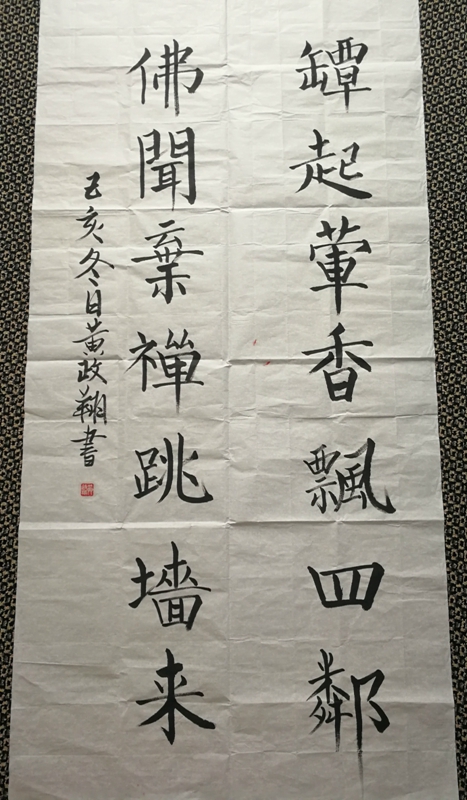 罈起葷香飄四鄰
佛聞棄禪跳墻来
己亥冬日黄政翔書